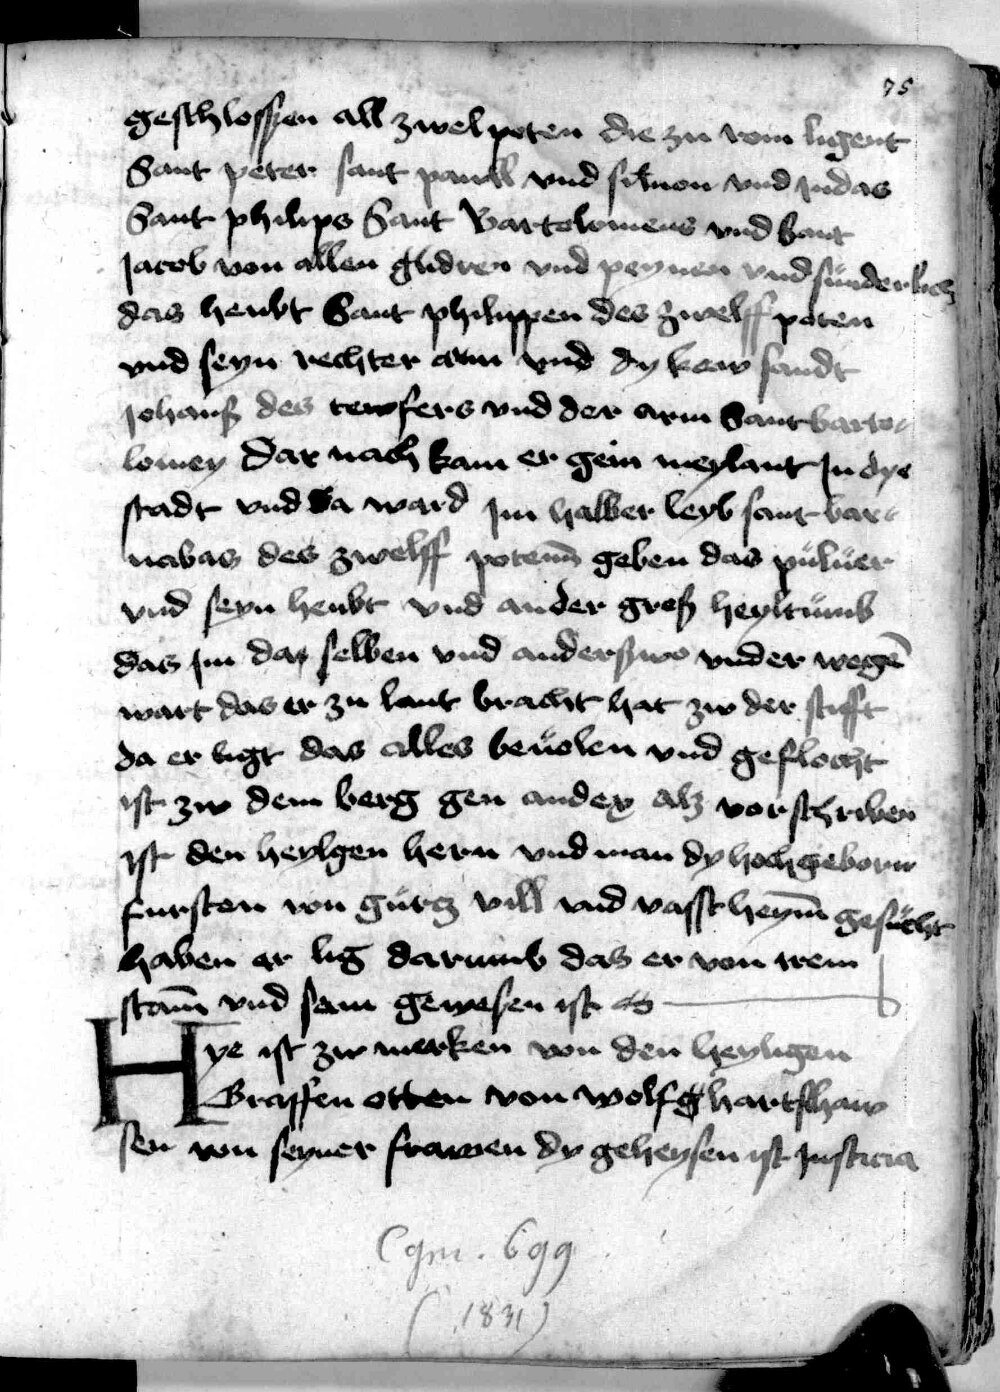 75
geschlossen all zwelpoten die zu rom ligent
Sant peter sant paull vnd simon vnd Judas
Sant philips Sant Bartolomeus vnd sant
Jacob von allen glidren vnd peynen vnd sünderlich
das heubt Sant philippen des zwelff poten
vnd seyn rechter arm vnd dy kew sandt
Johanß des tewfers vnd der arm Sant barto
lomey Dar nach kam er gein meylant In dye
stadt vnd da ward Im halber leyb sant bar
nabas des zwelff poten̄ geben das pulüer
vnd seyn heubt vnd ander groß heyltümb
das Im da selben vnd anderßwo vnder wegē
wart das er zu lant bracht hat zw der stifft
da er ligt das alles beuolen vnd geflocht
ist zw dem berg gen andex alz vor schriben
ist den heylgen hern vnd man dy hochgeborn
fursten von gürcz vill vnd vasst heym̄ gesücht
haben er lig darumb das er von irem
stam̄ vnd sam gewesen ist
Hye ist zw merken von den heyligen
Graffen otten von wolfghartßhaw
sen von seyner frawen dy geheysen ist Justicia
Cgm. 699
(1831)